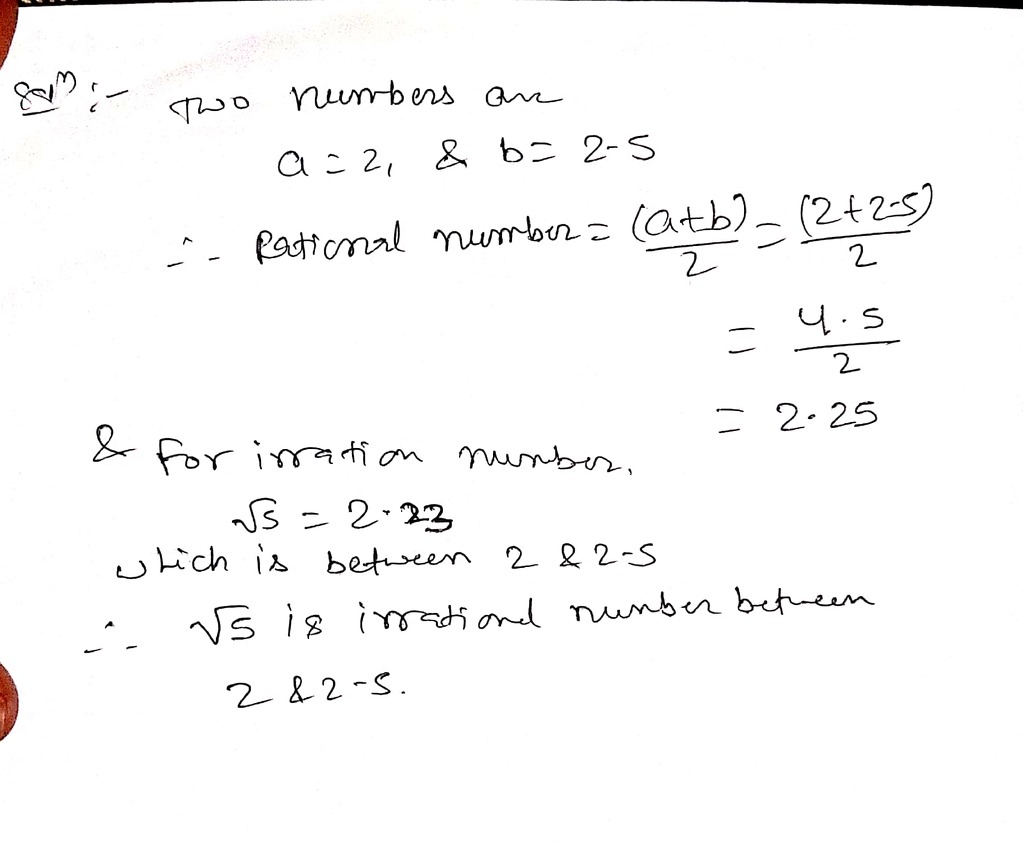 Solⁿ :- Two numbers are
a = 2, & b = 2.5
∴ Rational number = (a+b)/2 = (2+2.5)/2
= 4.5/2
= 2.25
& for irration number,
√5 = 2.23
which is between 2 & 2.5
∴ √5 is irrational number between
2 & 2.5.